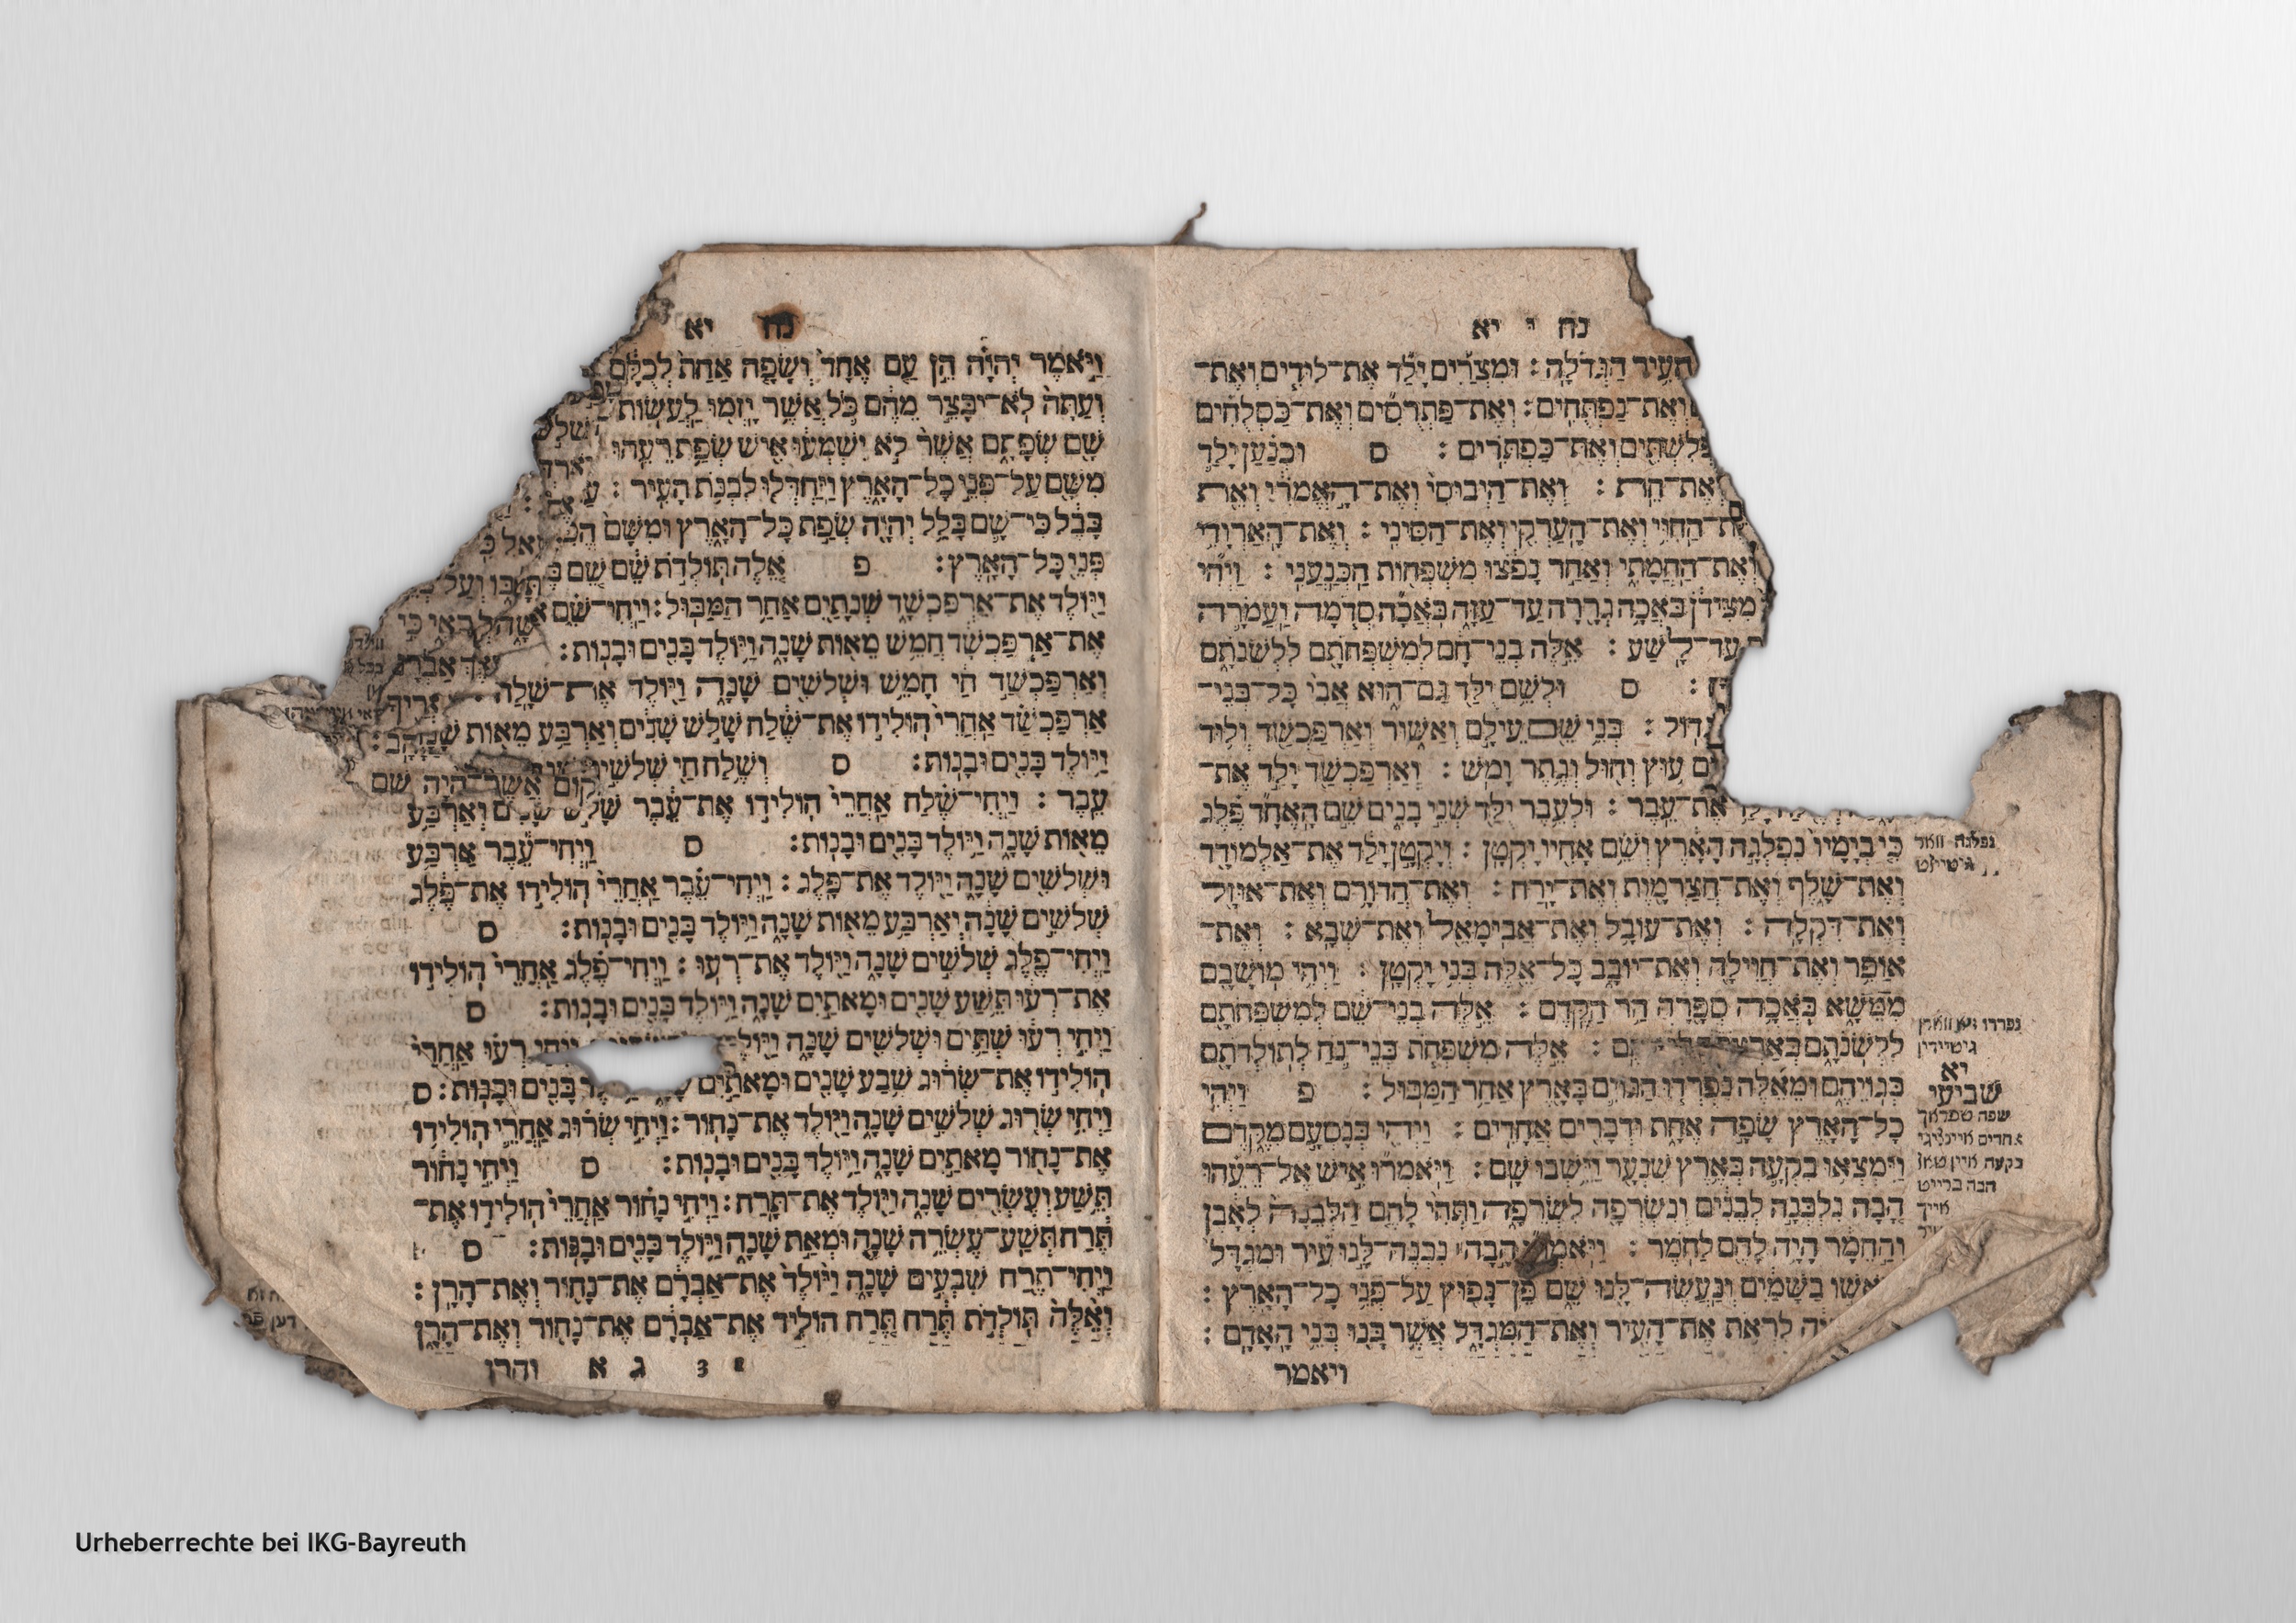 נח י יא
העיר הַגְּדֹלָה׃ וּמִצְרַיִם יָלַד אֶת־לוּדִים וְאֶת־
וְאֶת־נַפְתֻּחִים׃ וְאֶת־פַּתְרֻסִים וְאֶת־כַּסְלֻחִים
פְּלִשְׁתִּים וְאֶת־כַּפְתֹּרִים׃ ס וּכְנַעַן יָלַד
וְאֶת־חֵת׃ וְאֶת־הַיְבוּסִי וְאֶת־הָאֱמֹרִי וְאֵת
הַחִוִּי וְאֶת־הָעַרְקִי וְאֶת־הַסִּינִי׃ וְאֶת־הָאַרְוָדִי
וְאֶת־הַחֲמָתִי וְאַחַר נָפֹצוּ מִשְׁפְּחוֹת הַכְּנַעֲנִי׃ וַיְהִי
מִצִּידֹן בֹּאֲכָה גְרָרָה עַד־עַזָּה בֹּאֲכָה סְדֹמָה וַעֲמֹרָה
עַד־לָשַׁע׃ אֵלֶּה בְנֵי־חָם לְמִשְׁפְּחֹתָם לִלְשֹׁנֹתָם
׃ ס וּלְשֵׁם יֻלַּד גַּם־הוּא אֲבִי כָּל־בְּנֵי־
׃ בְּנֵי שֵׁם עֵילָם וְאַשּׁוּר וְאַרְפַּכְשַׁד וְלוּד
עוּץ וְחוּל וְגֶתֶר וָמַשׁ׃ וְאַרְפַּכְשַׁד יָלַד אֶת־
אֶת־עֵבֶר׃ וּלְעֵבֶר יֻלַּד שְׁנֵי בָנִים שֵׁם הָאֶחָד פֶּלֶג
כִּי בְיָמָיו נִפְלְגָה הָאָרֶץ וְשֵׁם אָחִיו יָקְטָן׃ וְיָקְטָן יָלַד אֶת־אַלְמוֹדָד
וְאֶת־שָׁלֶף וְאֶת־חֲצַרְמָוֶת וְאֶת־יָרַח׃ וְאֶת־הֲדוֹרָם וְאֶת־אוּזָל
וְאֶת־דִּקְלָה׃ וְאֶת־עוֹבָל וְאֶת־אֲבִימָאֵל וְאֶת־שְׁבָא׃ וְאֶת־
אוֹפִר וְאֶת־חֲוִילָה וְאֶת־יוֹבָב כָּל־אֵלֶּה בְּנֵי יָקְטָן׃ וַיְהִי מוֹשָׁבָם
מִמֵּשָׁא בֹּאֲכָה סְפָרָה הַר הַקֶּדֶם׃ אֵלֶּה בְנֵי־שֵׁם לְמִשְׁפְּחֹתָם
לִלְשֹׁנֹתָם ׃ אֵלֶּה מִשְׁפְּחֹת בְּנֵי־נֹחַ לְתוֹלְדֹתָם
בְּגוֹיֵהֶם וּמֵאֵלֶּה נִפְרְדוּ הַגּוֹיִם בָּאָרֶץ אַחַר הַמַּבּוּל׃ פ וַיְהִי
כָל־הָאָרֶץ שָׂפָה אֶחָת וּדְבָרִים אֲחָדִים׃ וַיְהִי בְּנָסְעָם מִקֶּדֶם
וַיִּמְצְאוּ בִקְעָה בְּאֶרֶץ שִׁנְעָר וַיֵּשְׁבוּ שָׁם׃ וַיֹּאמְרוּ אִישׁ אֶל־רֵעֵהוּ
הָבָה נִלְבְּנָה לְבֵנִים וְנִשְׂרְפָה לִשְׂרֵפָה וַתְּהִי לָהֶם הַלְּבֵנָה לְאָבֶן
וְהַחֵמָר הָיָה לָהֶם לַחֹמֶר׃ הָבָה נִבְנֶה־לָּנוּ עִיר וּמִגְדָּל
בַשָּׁמַיִם וְנַעֲשֶׂה־לָּנוּ שֵׁם פֶּן־נָפוּץ עַל־פְּנֵי כָל־הָאָרֶץ׃
לִרְאֹת אֶת־הָעִיר וְאֶת־הַמִּגְדָּל אֲשֶׁר בָּנוּ בְּנֵי הָאָדָם׃
ויאמר
נפלגה וואר
יא
שביעי
שפה שפראך
אחדים איינציגי
הבה ברייט
נח יא
וַיֹּאמֶר יְהוָה הֵן עַם אֶחָד וְשָׂפָה אַחַת לְכֻלָּם
וְעַתָּה לֹא־יִבָּצֵר מֵהֶם כֹּל אֲשֶׁר יָזְמוּ לַעֲשׂוֹת
שָׁם שְׂפָתָם אֲשֶׁר לֹא יִשְׁמְעוּ אִישׁ שְׂפַת רֵעֵהוּ
מִשָּׁם עַל־פְּנֵי כָל־הָאָרֶץ וַיַּחְדְּלוּ לִבְנֹת הָעִיר׃
בָּבֶל כִּי־שָׁם בָּלַל יְהוָה שְׂפַת כָּל־הָאָרֶץ וּמִשָּׁם
פְּנֵי כָּל־הָאָרֶץ׃ פ אֵלֶּה תּוֹלְדֹת שֵׁם שֵׁם
וַיּוֹלֶד אֶת־אַרְפַּכְשָׁד שְׁנָתַיִם אַחַר הַמַּבּוּל׃ וַיְחִי־שֵׁם
אֶת־אַרְפַּכְשָׁד חֲמֵשׁ מֵאוֹת שָׁנָה וַיּוֹלֶד בָּנִים וּבָנוֹת׃
וְאַרְפַּכְשַׁד חַי חָמֵשׁ וּשְׁלֹשִׁים שָׁנָה וַיּוֹלֶד אֶת־שָׁלַח׃
אַרְפַּכְשַׁד אַחֲרֵי הוֹלִידוֹ אֶת־שֶׁלַח שָׁלֹשׁ שָׁנִים וְאַרְבַּע מֵאוֹת
וַיּוֹלֶד בָּנִים וּבָנוֹת׃ ס וְשֶׁלַח חַי
עֵבֶר׃ וַיְחִי־שֶׁלַח אַחֲרֵי הוֹלִידוֹ אֶת־עֵבֶר שָׁלֹשׁ שָׁנִים וְאַרְבַּע
מֵאוֹת שָׁנָה וַיּוֹלֶד בָּנִים וּבָנוֹת׃ ס וַיְחִי־עֵבֶר אַרְבַּע
וּשְׁלֹשִׁים שָׁנָה וַיּוֹלֶד אֶת־פָּלֶג׃ וַיְחִי־עֵבֶר אַחֲרֵי הוֹלִידוֹ אֶת־פֶּלֶג
שְׁלֹשִׁים שָׁנָה וְאַרְבַּע מֵאוֹת שָׁנָה וַיּוֹלֶד בָּנִים וּבָנוֹת׃ ס
וַיְחִי־פֶלֶג שְׁלֹשִׁים שָׁנָה וַיּוֹלֶד אֶת־רְעוּ׃ וַיְחִי־פֶלֶג אַחֲרֵי הוֹלִידוֹ
אֶת־רְעוּ תֵּשַׁע שָׁנִים וּמָאתַיִם שָׁנָה וַיּוֹלֶד בָּנִים וּבָנוֹת׃ ס
וַיְחִי רְעוּ שְׁתַּיִם וּשְׁלֹשִׁים שָׁנָה רְעוּ אַחֲרֵי
הוֹלִידוֹ אֶת־שְׂרוּג שֶׁבַע שָׁנִים וּמָאתַיִם בָּנִים וּבָנוֹת׃ ס
וַיְחִי שְׂרוּג שְׁלֹשִׁים שָׁנָה וַיּוֹלֶד אֶת־נָחוֹר׃ וַיְחִי שְׂרוּג אַחֲרֵי הוֹלִידוֹ
אֶת־נָחוֹר מָאתַיִם שָׁנָה וַיּוֹלֶד בָּנִים וּבָנוֹת׃ ס וַיְחִי נָחוֹר
תֵּשַׁע וְעֶשְׂרִים שָׁנָה וַיּוֹלֶד אֶת־תָּרַח׃ וַיְחִי נָחוֹר אַחֲרֵי הוֹלִידוֹ אֶת־
תֶּרַח תְּשַׁע־עֶשְׂרֵה שָׁנָה וּמְאַת שָׁנָה וַיּוֹלֶד בָּנִים וּבָנוֹת׃ ס
וַיְחִי־תֶרַח שִׁבְעִים שָׁנָה וַיּוֹלֶד אֶת־אַבְרָם אֶת־נָחוֹר וְאֶת־הָרָן׃
וְאֵלֶּה תּוֹלְדֹת תֶּרַח תֶּרַח הוֹלִיד אֶת־אַבְרָם אֶת־נָחוֹר וְאֶת־הָרָן
ג א והרן
Urheberrechte bei IKG-Bayreuth